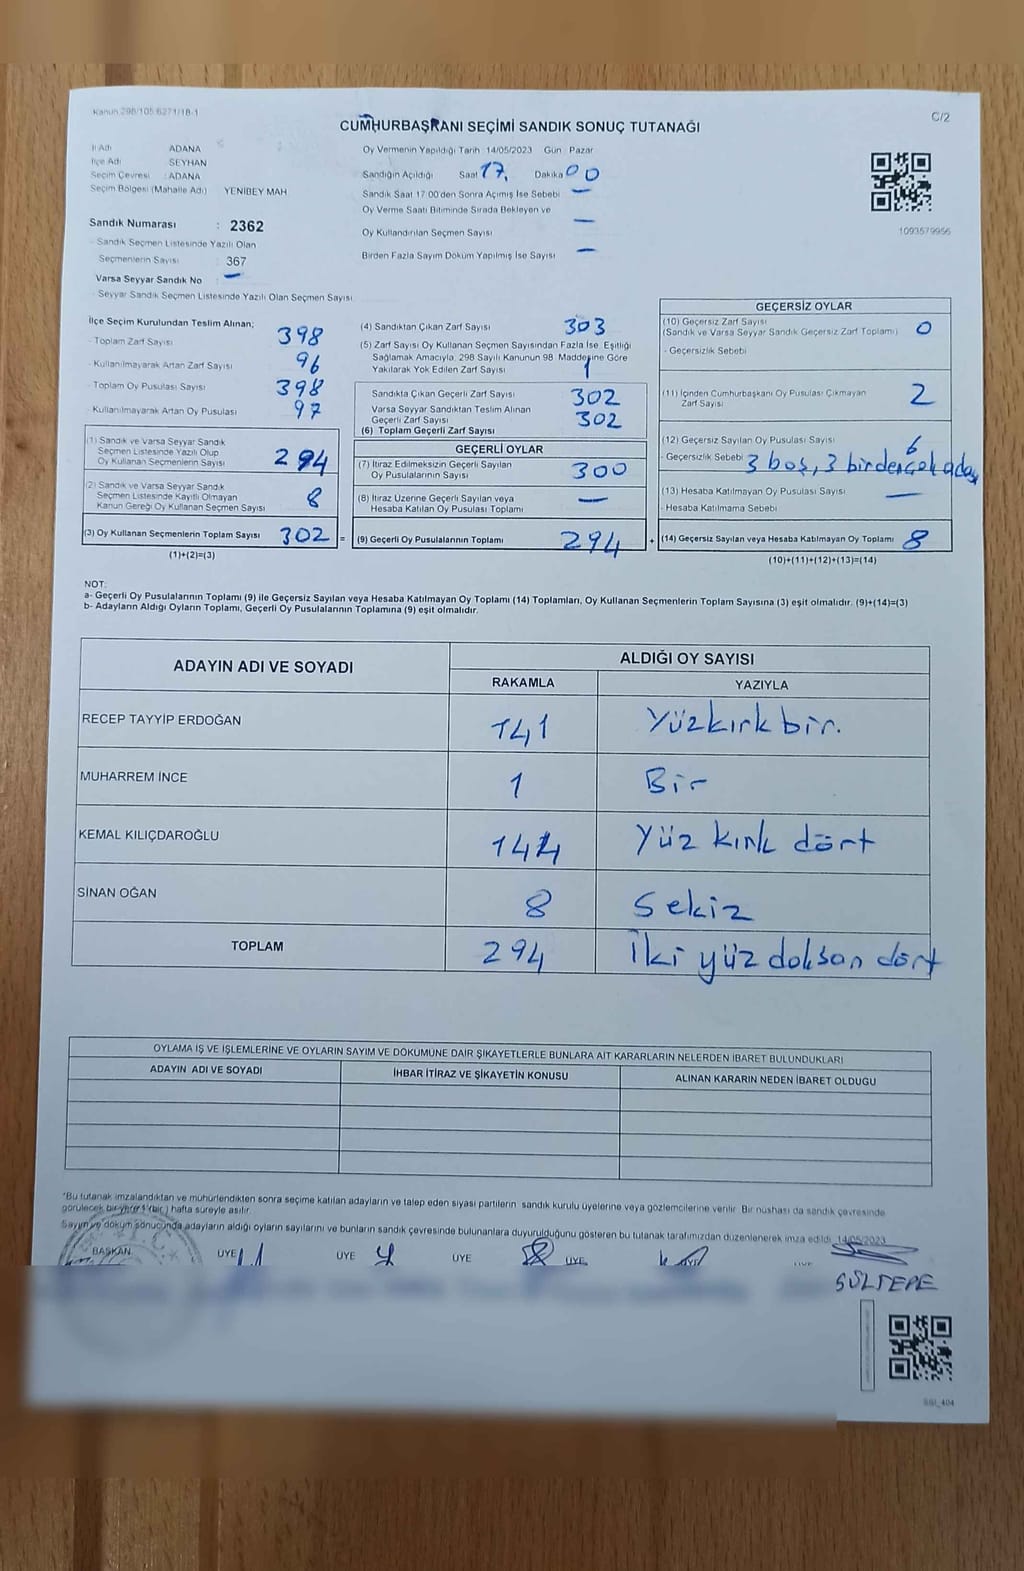 Kanun 298/105 6271/18-1
C/2
CUMHURBAŞKANI SEÇİMİ SANDIK SONUÇ TUTANAĞI
İl Adı ADANA
İlçe Adı SEYHAN
Seçim Çevresi : ADANA
Seçim Bölgesi (Mahalle Adı) YENİBEY MAH
Oy Vermenin Yapıldığı Tarih 14/05/2023 Gün Pazar
Sandığın Açıldığı Saat 17, Dakika 00
Sandık Saat 17:00'den Sonra Açımış İse Sebebi —
Oy Verme Saati Bitiminde Sırada Bekleyen ve —
Oy Kullandırılan Seçmen Sayısı
Birden Fazla Sayım Döküm Yapılmış İse Sayısı —
1093579956
Sandık Numarası : 2362
- Sandık Seçmen Listesinde Yazılı Olan
Seçmenlerin Sayısı : 367
Varsa Seyyar Sandık No : —
- Seyyar Sandık Seçmen Listesinde Yazılı Olan Seçmen Sayısı
İlçe Seçim Kurulundan Teslim Alınan;
- Toplam Zarf Sayısı 398
- Kullanılmayarak Artan Zarf Sayısı 96
- Toplam Oy Pusulası Sayısı 398
- Kullanılmayarak Artan Oy Pusulası 97
(1) Sandık ve Varsa Seyyar Sandık
Seçmen Listesinde Yazılı Olup
Oy Kullanan Seçmenlerin Sayısı 294
(2) Sandık ve Varsa Seyyar Sandık
Seçmen Listesinde Kayıtlı Olmayan
Kanun Gereği Oy Kullanan Seçmen Sayısı 8
(3) Oy Kullanan Seçmenlerin Toplam Sayısı 302 =
(1)+(2)=(3)
(4) Sandıktan Çıkan Zarf Sayısı 303
(5) Zarf Sayısı Oy Kullanan Seçmen Sayısından Fazla İse, Eşitliği
Sağlamak Amacıyla, 298 Sayılı Kanunun 98. Maddesine Göre
Yakılarak Yok Edilen Zarf Sayısı 1
Sandıkta Çıkan Geçerli Zarf Sayısı 302
Varsa Seyyar Sandıktan Teslim Alınan
Geçerli Zarf Sayısı 302
(6) Toplam Geçerli Zarf Sayısı
GEÇERLİ OYLAR
(7) İtiraz Edilmeksizin Geçerli Sayılan
Oy Pusulalarının Sayısı 300
(8) İtiraz Üzerine Geçerli Sayılan veya
Hesaba Katılan Oy Pusulası Toplamı —
(9) Geçerli Oy Pusulalarının Toplamı 294 +
GEÇERSİZ OYLAR
(10) Geçersiz Zarf Sayısı
(Sandık ve Varsa Seyyar Sandık Geçersiz Zarf Toplamı) 0
- Geçersizlik Sebebi
(11) İçinden Cumhurbaşkanı Oy Pusulası Çıkmayan
Zarf Sayısı 2
(12) Geçersiz Sayılan Oy Pusulası Sayısı 6
- Geçersizlik Sebebi 3 boş, 3 birden çok aday
(13) Hesaba Katılmayan Oy Pusulası Sayısı —
- Hesaba Katılmama Sebebi
(14) Geçersiz Sayılan veya Hesaba Katılmayan Oy Toplamı 8
(10)+(11)+(12)+(13)=(14)
NOT:
a- Geçerli Oy Pusulalarının Toplamı (9) ile Geçersiz Sayılan veya Hesaba Katılmayan Oy Toplamı (14) Toplamları, Oy Kullanan Seçmenlerin Toplam Sayısına (3) eşit olmalıdır. (9)+(14)=(3)
b- Adayların Aldığı Oyların Toplamı, Geçerli Oy Pusulalarının Toplamına (9) eşit olmalıdır.
ADAYIN ADI VE SOYADI ALDIĞI OY SAYISI
RAKAMLA YAZIYLA
RECEP TAYYİP ERDOĞAN 141 Yüzkırkbir.
MUHARREM İNCE 1 Bir
KEMAL KILIÇDAROĞLU 144 Yüz kırk dört
SİNAN OĞAN 8 Sekiz
TOPLAM 294 İki yüz doksan dört
OYLAMA İŞ VE İŞLEMLERİNE VE OYLARIN SAYIM VE DÖKÜMÜNE DAİR ŞİKAYETLERLE BUNLARA AİT KARARLARIN NELERDEN İBARET BULUNDUKLARI
ADAYIN ADI VE SOYADI İHBAR İTİRAZ VE ŞİKAYETİN KONUSU ALINAN KARARIN NEDEN İBARET OLDUĞU
*Bu tutanak imzalandıktan ve mühürlendikten sonra seçime katılan adayların ve talep eden siyasi partilerin sandık kurulu üyelerine veya gözlemcilerine verilir. Bir nüshası da sandık çevresinde
görülecek bir yere 1 (bir) hafta süreyle asılır.
Sayım ve döküm sonucunda adayların aldığı oyların sayılarını ve bunların sandık çevresinde bulunanlara duyurulduğunu gösteren bu tutanak tarafımızdan düzenlenerek imza edildi. 14/05/2023
BAŞKAN ÜYE ÜYE ÜYE ÜYE ÜYE
GÜLTEPE
SSI_404